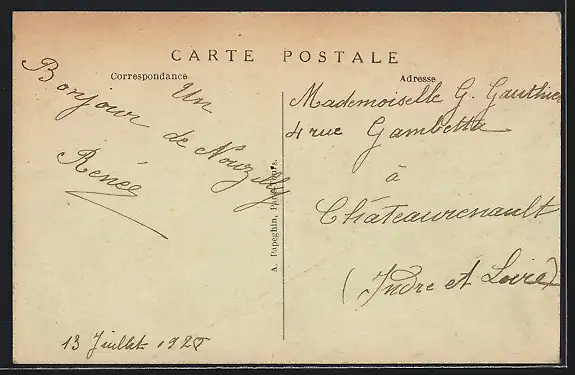 CARTE POSTALE
Correspondance
Adresse
Un
Bonjour de Nouzilly
Renée
13 Juillet 192
A. Papeghin, Paris-Tours.
Mademoiselle G. Gauthier
4 rue Gambetta
à
Châteaurenault
(Indre et Loire)